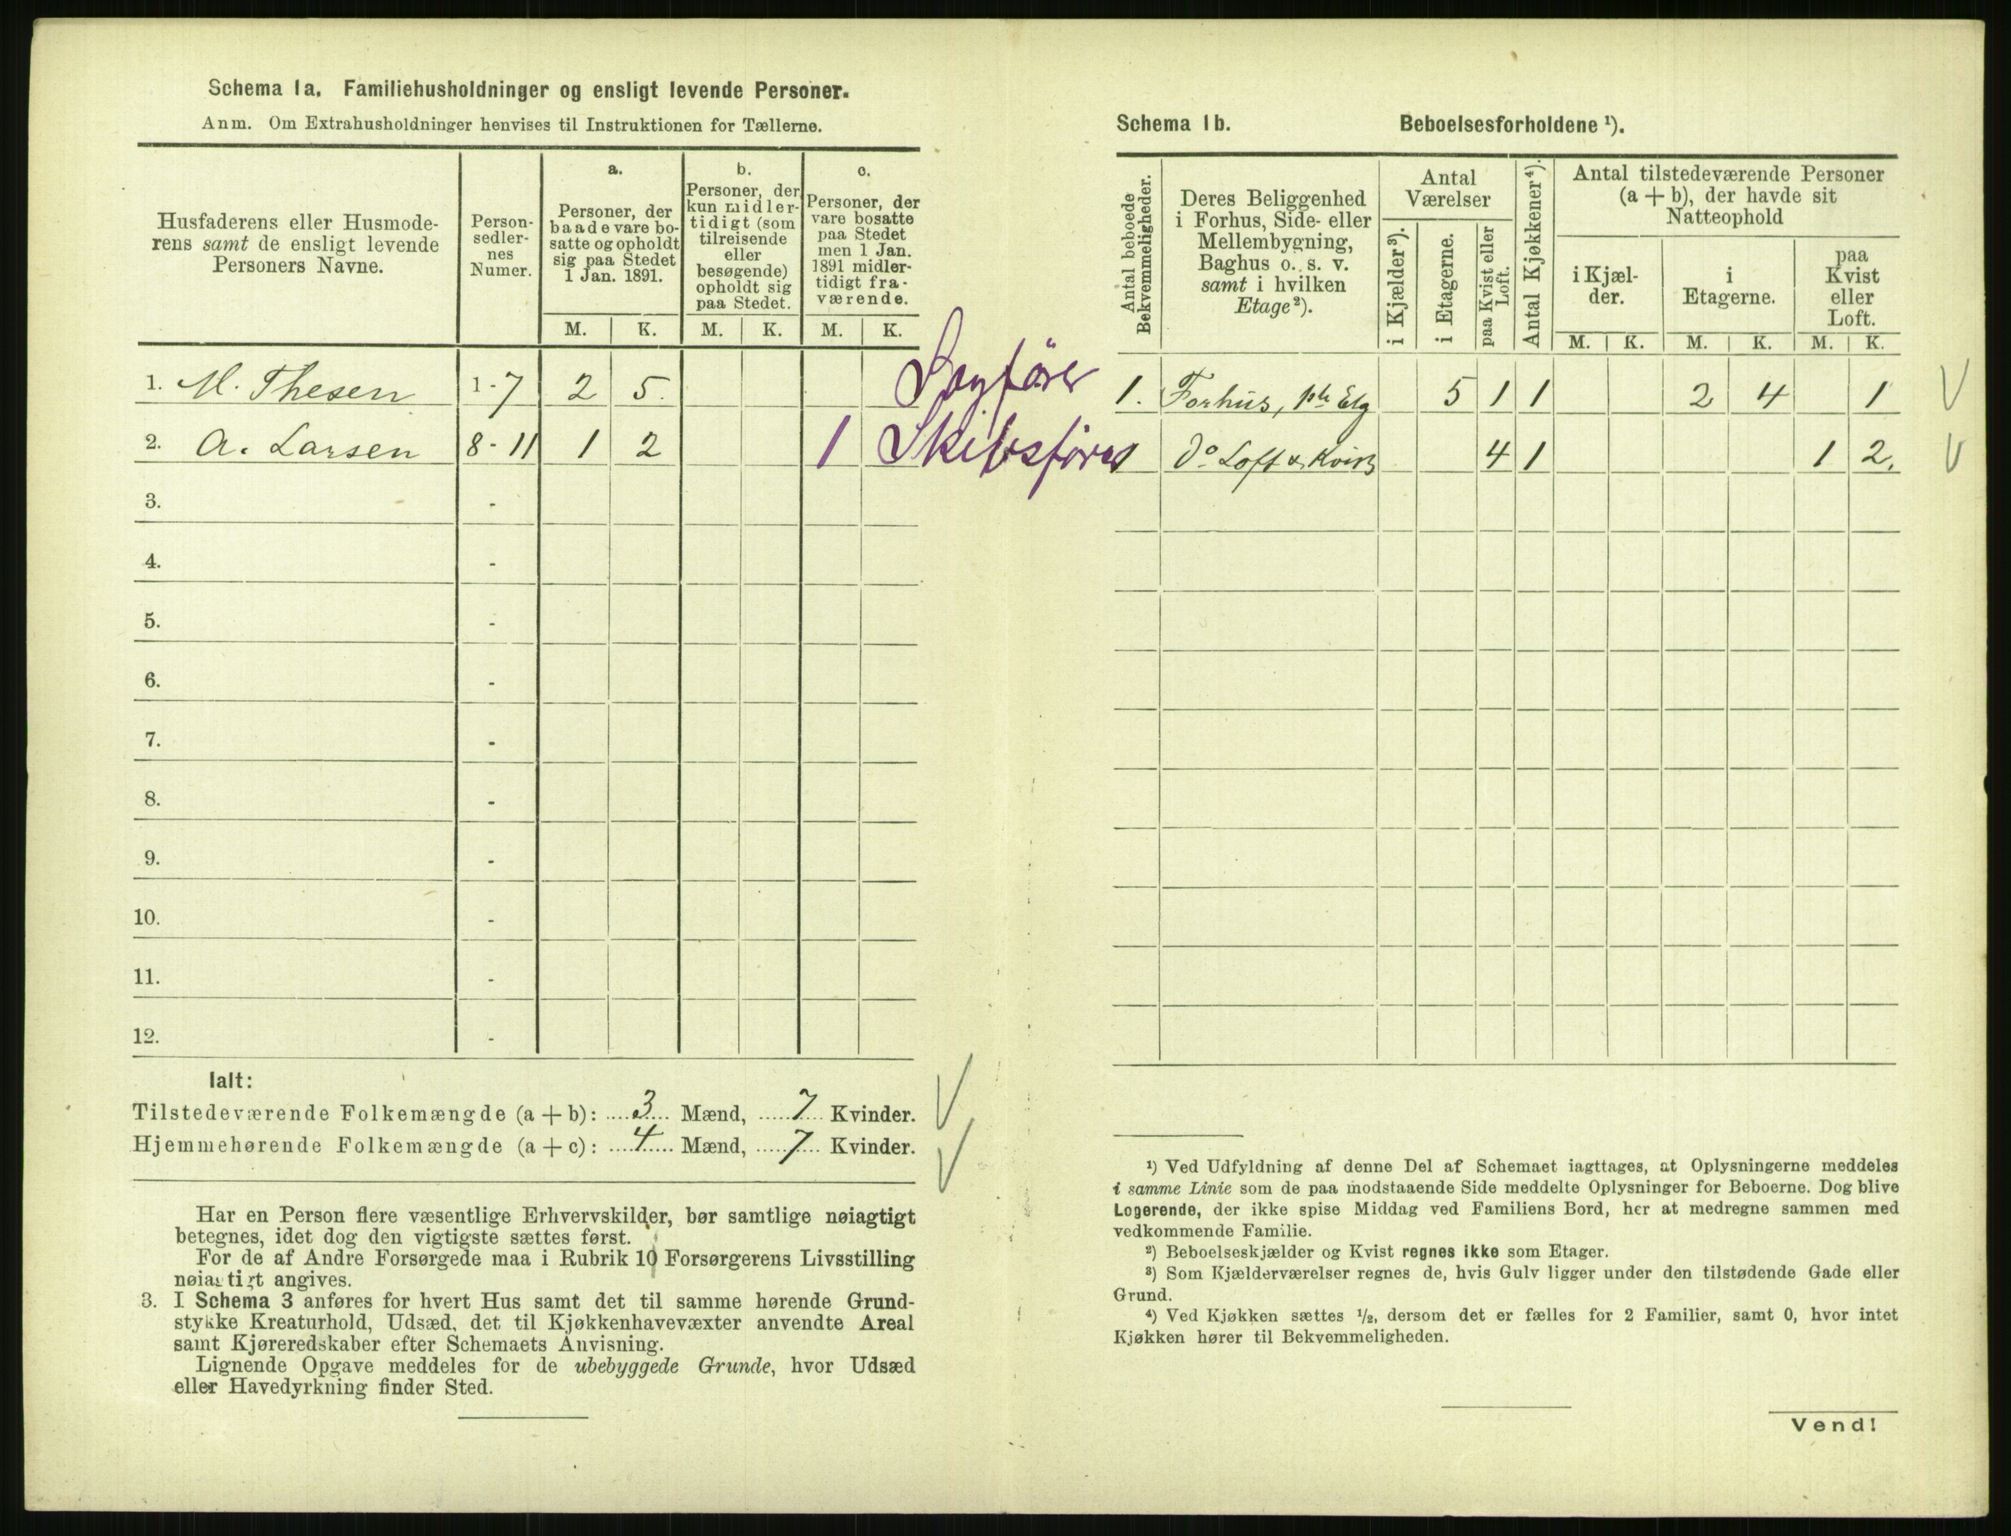 Schema 1a. Familiehusholdninger og ensligt levende Personer.
Anm. Om Extrahusholdninger henvises til Instruktionen for Tællerne.
Husfaderens eller Husmode-
rens samt de ensligt levende
Personers Navne.
Person-
sedler-
nes
Numer.
a.
Personer, der
baade vare bo-
satte og opholdt
sig paa Stedet
1 Jan. 1891.
b.
Personer, der
kun midler-
tidigt (som
tilreisende
eller
besøgende)
opholdt sig
paa Stedet.
c.
Personer, der
vare bosatte
paa Stedet
men 1 Jan.
1891 midler-
tidigt fra-
værende.
M. K. M. K. M. K.
1. M. Thesen 1-7 2 5. Sagfører
2. A. Larsen 8-11 1 2 1 Skibsfører
3. -
4. -
5. -
6. -
7. -
8. -
9. -
10. -
11. -
12. -
Ialt:
Tilstedeværende Folkemængde (a + b): 3 Mænd, 7 Kvinder.
Hjemmehørende Folkemængde (a + c): 4 Mænd, 7 Kvinder.
Har en Person flere væsentlige Erhvervskilder, bør samtlige nøiagtigt
betegnes, idet dog den vigtigste sættes først.
For de af Andre Forsørgede maa i Rubrik 10 Forsørgerens Livsstilling
nøiagtigt angives.
3. I Schema 3 anføres for hvert Hus samt det til samme hørende Grund-
stykke Kreaturhold, Udsæd, det til Kjøkkenhavevæxter anvendte Areal
samt Kjøreredskaber efter Schemaets Anvisning.
Lignende Opgave meddeles for de ubebyggede Grunde, hvor Udsæd
eller Havedyrkning finder Sted.
Schema 1b. Beboelsesforholdene ¹).
Antal beboede
Bekvemmeligheder.
Deres Beliggenhed
i Forhus, Side- eller
Mellembygning,
Baghus o. s. v.
samt i hvilken
Etage²).
Antal
Værelser
i Kjælder³).
i Etagerne.
paa Kvist eller
Loft.
Antal Kjøkkener⁴).
Antal tilstedeværende Personer
(a + b), der havde sit
Natteophold
i Kjæl-
der.
i
Etagerne.
paa
Kvist
eller
Loft.
M. K. M. K. M. K.
1. Forhus, 1ste Etg 5 1 1 2 4 1
1 Do Loft & Kvist 4 1 1 2.
¹) Ved Udfyldning af denne Del af Schemaet iagttages, at Oplysningerne meddeles
i samme Linie som de paa modstaaende Side meddelte Oplysninger for Beboerne. Dog blive
Logerende, der ikke spise Middag ved Familiens Bord, her at medregne sammen med
vedkommende Familie.
²) Beboelseskjælder og Kvist regnes ikke som Etager.
³) Som Kjælderværelser regnes de, hvis Gulv ligger under den tilstødende Gade eller
Grund.
⁴) Ved Kjøkken sættes ½, dersom det er fælles for 2 Familier, samt 0, hvor intet
Kjøkken hører til Bekvemmeligheden.
Vend!